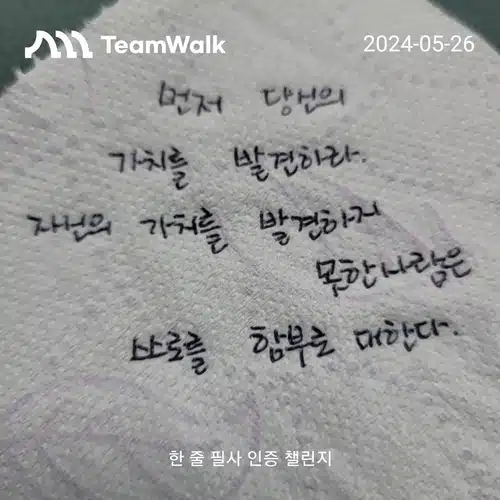 TeamWalk
2024-05-26
먼저 당신의
가치를 발견하라.
자신의 가치를 발견하지
못한 사람은
스스로를 함부로 대한다.
한 줄 필사 인증 챌린지